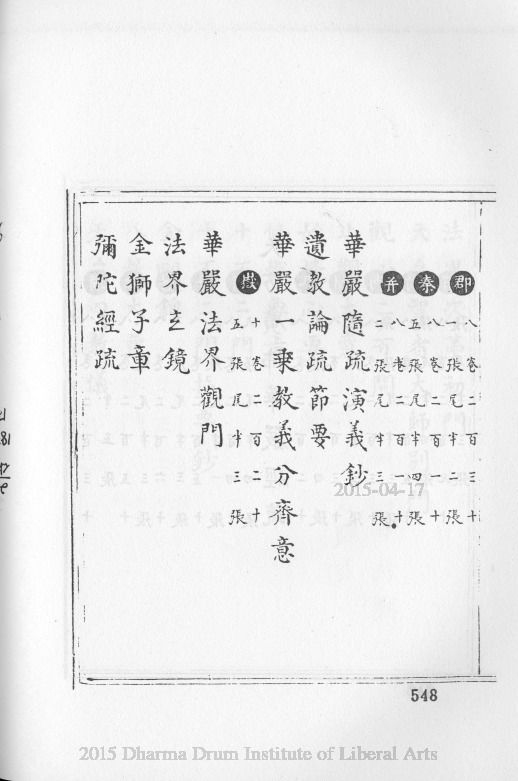 郡 八卷二百三十
一張尾半二張
秦 八卷二百一十
五張尾半四張
并 八卷二百一十
一張尾半三張
華嚴隨疏演義鈔
遺教論疏節要
華嚴一乘教義分齊意
嶽 十卷二百二十
五張尾半三張
華嚴法界觀門
法界玄鏡
金獅子章
彌陀經疏
548
2015-04-17
2015 Dharma Drum Institute of Liberal Arts